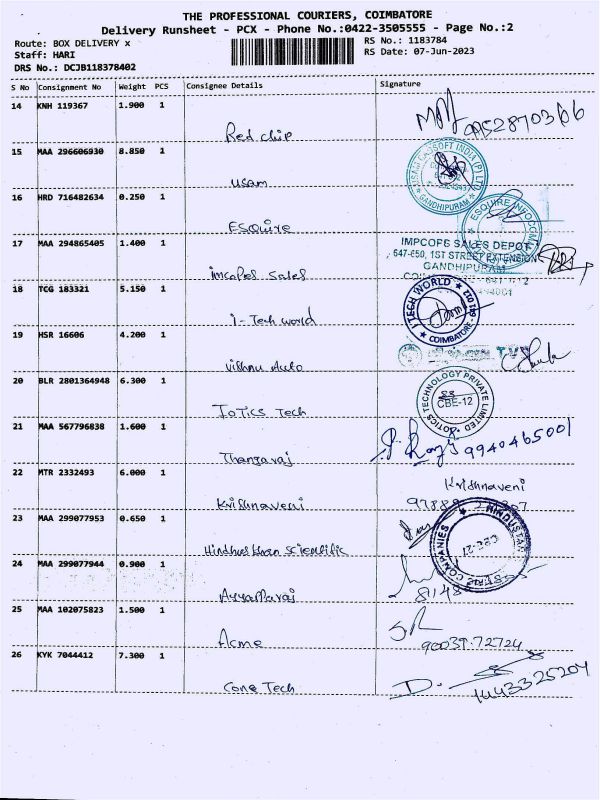 THE PROFESSIONAL COURIERS, COIMBATORE
Delivery Runsheet - PCX - Phone No.:0422-3505555 - Page No.:2
Route: BOX DELIVERY x
RS No.: 1183784
Staff: HARI
RS Date: 07-Jun-2023
DRS No.: DCJB118378402
S No Consignment No Weight PCS Consignee Details Signature
14 KNH 119367 1.900 1
Red chip
15 MAA 296606930 8.850 1
USam
GANDHIPURAM
16 HRD 716482634 0.250 1
ESquire
ESQUIRE
17 MAA 294865405 1.400 1
IMPCOPS SALES DEPOT
647-650, 1ST STREET EXTENSION
GANDHIPURAM
imcopes sales
18 TCG 183321 5.150 1
I TECH WORLD
COIMBATORE
i-Tech world
19 HSR 16606 4.200 1
Vishnu Auto
20 BLR 2801364948 6.300 1
TECHNOLOGY PRIVATE LIMITED
CBE-12
IoTics Tech
21 MAA 567796838 1.600 1
9940465001
Thangaraj
22 MTR 2332493 6.000 1
Krishnaveni
Krishnaveni
23 MAA 299077953 0.650 1
COMPANIES
Hindhusthan Scientific
24 MAA 299077944 0.900 1
8148
25 MAA 102075823 1.500 1
Acme
90039.72724
26 KYK 7044412 7.300 1
Cone Tech